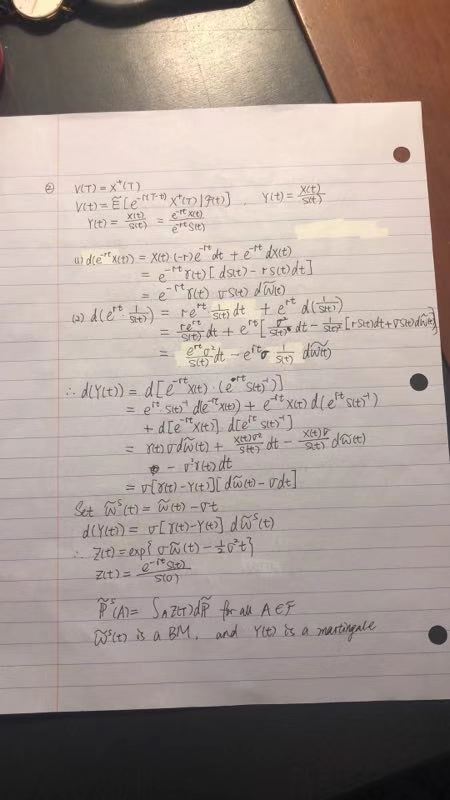 ② V(T) = X⁺(T)
V(t) = Ẽ[e^{-r(T-t)} X⁺(T)|F(t)], Y(t) = X(t)/S(t)
Y(t) = X(t)/S(t) = e^{-rt}X(t)/e^{-rt}S(t)
(1) d(e^{-rt}X(t)) = X(t)·(-r)e^{-rt}dt + e^{-rt}dX(t)
= e^{-rt}γ(t)[dS(t) - rS(t)dt]
= e^{-rt}γ(t) σS(t) dW̃(t)
(2) d(e^{rt}·1/S(t)) = re^{rt} 1/S(t) dt + e^{rt} d(1/S(t))
= re^{rt}/S(t) dt + e^{rt}[σ²/S(t) dt - 1/S(t)² [rS(t)dt + σS(t)dW̃(t)]
= e^{rt}σ²/S(t) dt - e^{rt}σ 1/S(t) dW̃(t)
∴ d(Y(t)) = d[e^{-rt}X(t)·(e^{rt}S(t)^{-1})]
= e^{rt}·S(t)^{-1} d(e^{-rt}X(t)) + e^{-rt}X(t) d(e^{rt}S(t)^{-1})
+ d[e^{-rt}X(t)]·d[e^{rt}S(t)^{-1}]
= γ(t)σdW̃(t) + X(t)σ²/S(t) dt - X(t)σ/S(t) dW̃(t)
- σ²γ(t)dt
= σ[γ(t)-Y(t)][dW̃(t) - σdt]
Set W̃^S(t) = W̃(t) - σt
d(Y(t)) = σ[γ(t)-Y(t)] dW̃^S(t)
∴ Z(t) = exp{σW̃(t) - ½σ²t}
Z(t) = e^{-rt}S(t)/S(0)
P̃^S(A) = ∫_A Z(T)dP̃ for all A∈F
W̃^S(t) is a BM, and Y(t) is a martingale